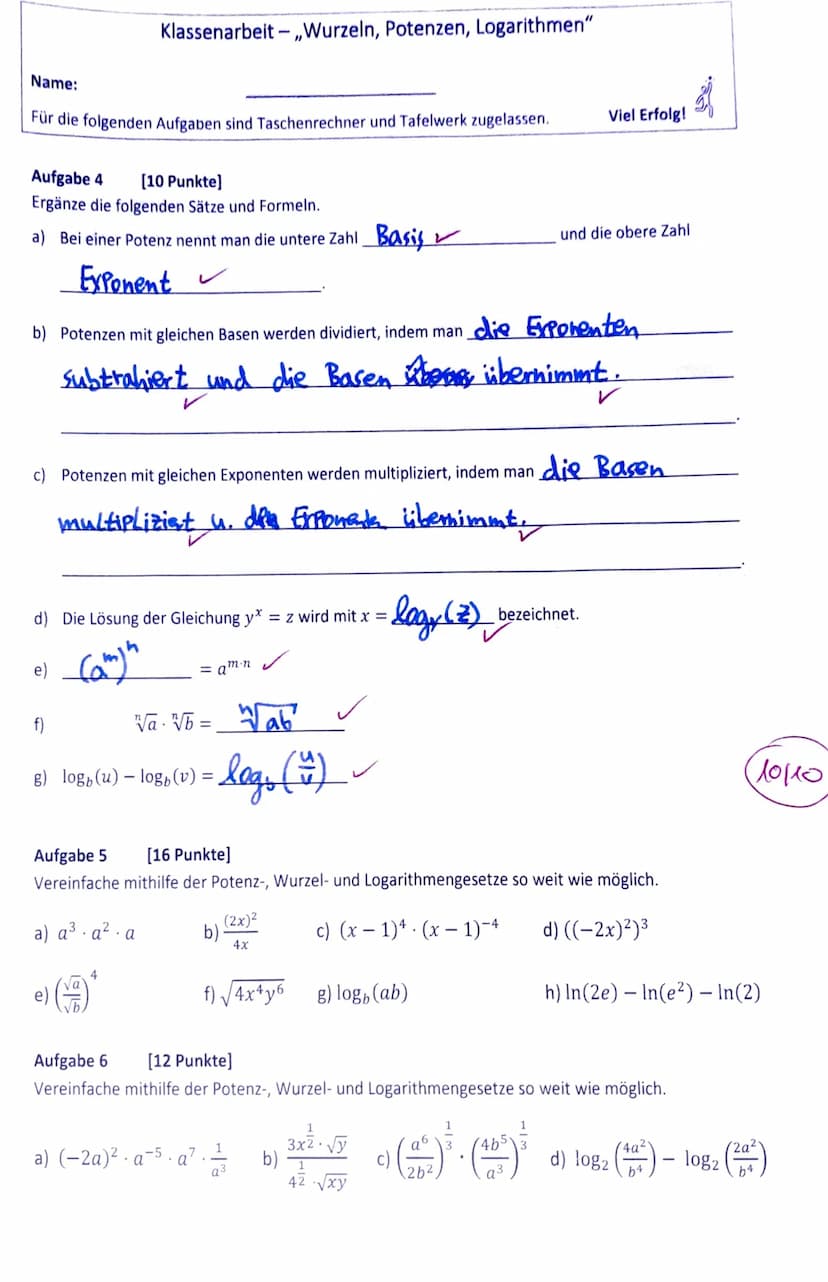 Klassenarbeit – „Wurzeln, Potenzen, Logarithmen“
Name:
Für die folgenden Aufgaben sind Taschenrechner und Tafelwerk zugelassen. Viel Erfolg!
Aufgabe 4 [10 Punkte]
Ergänze die folgenden Sätze und Formeln.
a) Bei einer Potenz nennt man die untere Zahl Basis und die obere Zahl
Exponent .
b) Potenzen mit gleichen Basen werden dividiert, indem man die Exponenten
subtrahiert und die Basen übernimmt.
.
c) Potenzen mit gleichen Exponenten werden multipliziert, indem man die Basen
multipliziert u. übernimmt.
.
d) Die Lösung der Gleichung yˣ = z wird mit x = log_y(z) bezeichnet.
e) (aᵐ)ⁿ = a^{m·n}
f) ⁿ√a · ⁿ√b = ⁿ√ab
g) log_b(u) − log_b(v) = log_b(u/v)
10/10
Aufgabe 5 [16 Punkte]
Vereinfache mithilfe der Potenz-, Wurzel- und Logarithmengesetze so weit wie möglich.
a) a³ · a² · a b) (2x)²/4x c) (x − 1)⁴ · (x − 1)⁻⁴ d) ((−2x)²)³
e) (√a/√b)⁴ f) √(4x⁴y⁶) g) log_b(ab) h) ln(2e) − ln(e²) − ln(2)
Aufgabe 6 [12 Punkte]
Vereinfache mithilfe der Potenz-, Wurzel- und Logarithmengesetze so weit wie möglich.
a) (−2a)² · a⁻⁵ · a⁷ · 1/a³ b) (3x^{1/2} · √y)/(4^{1/2} · √xy) c) (a⁶/2b²)^{1/3} · (4b⁵/a³)^{1/3} d) log₂(4a²/b⁴) − log₂(2a²/b⁴)